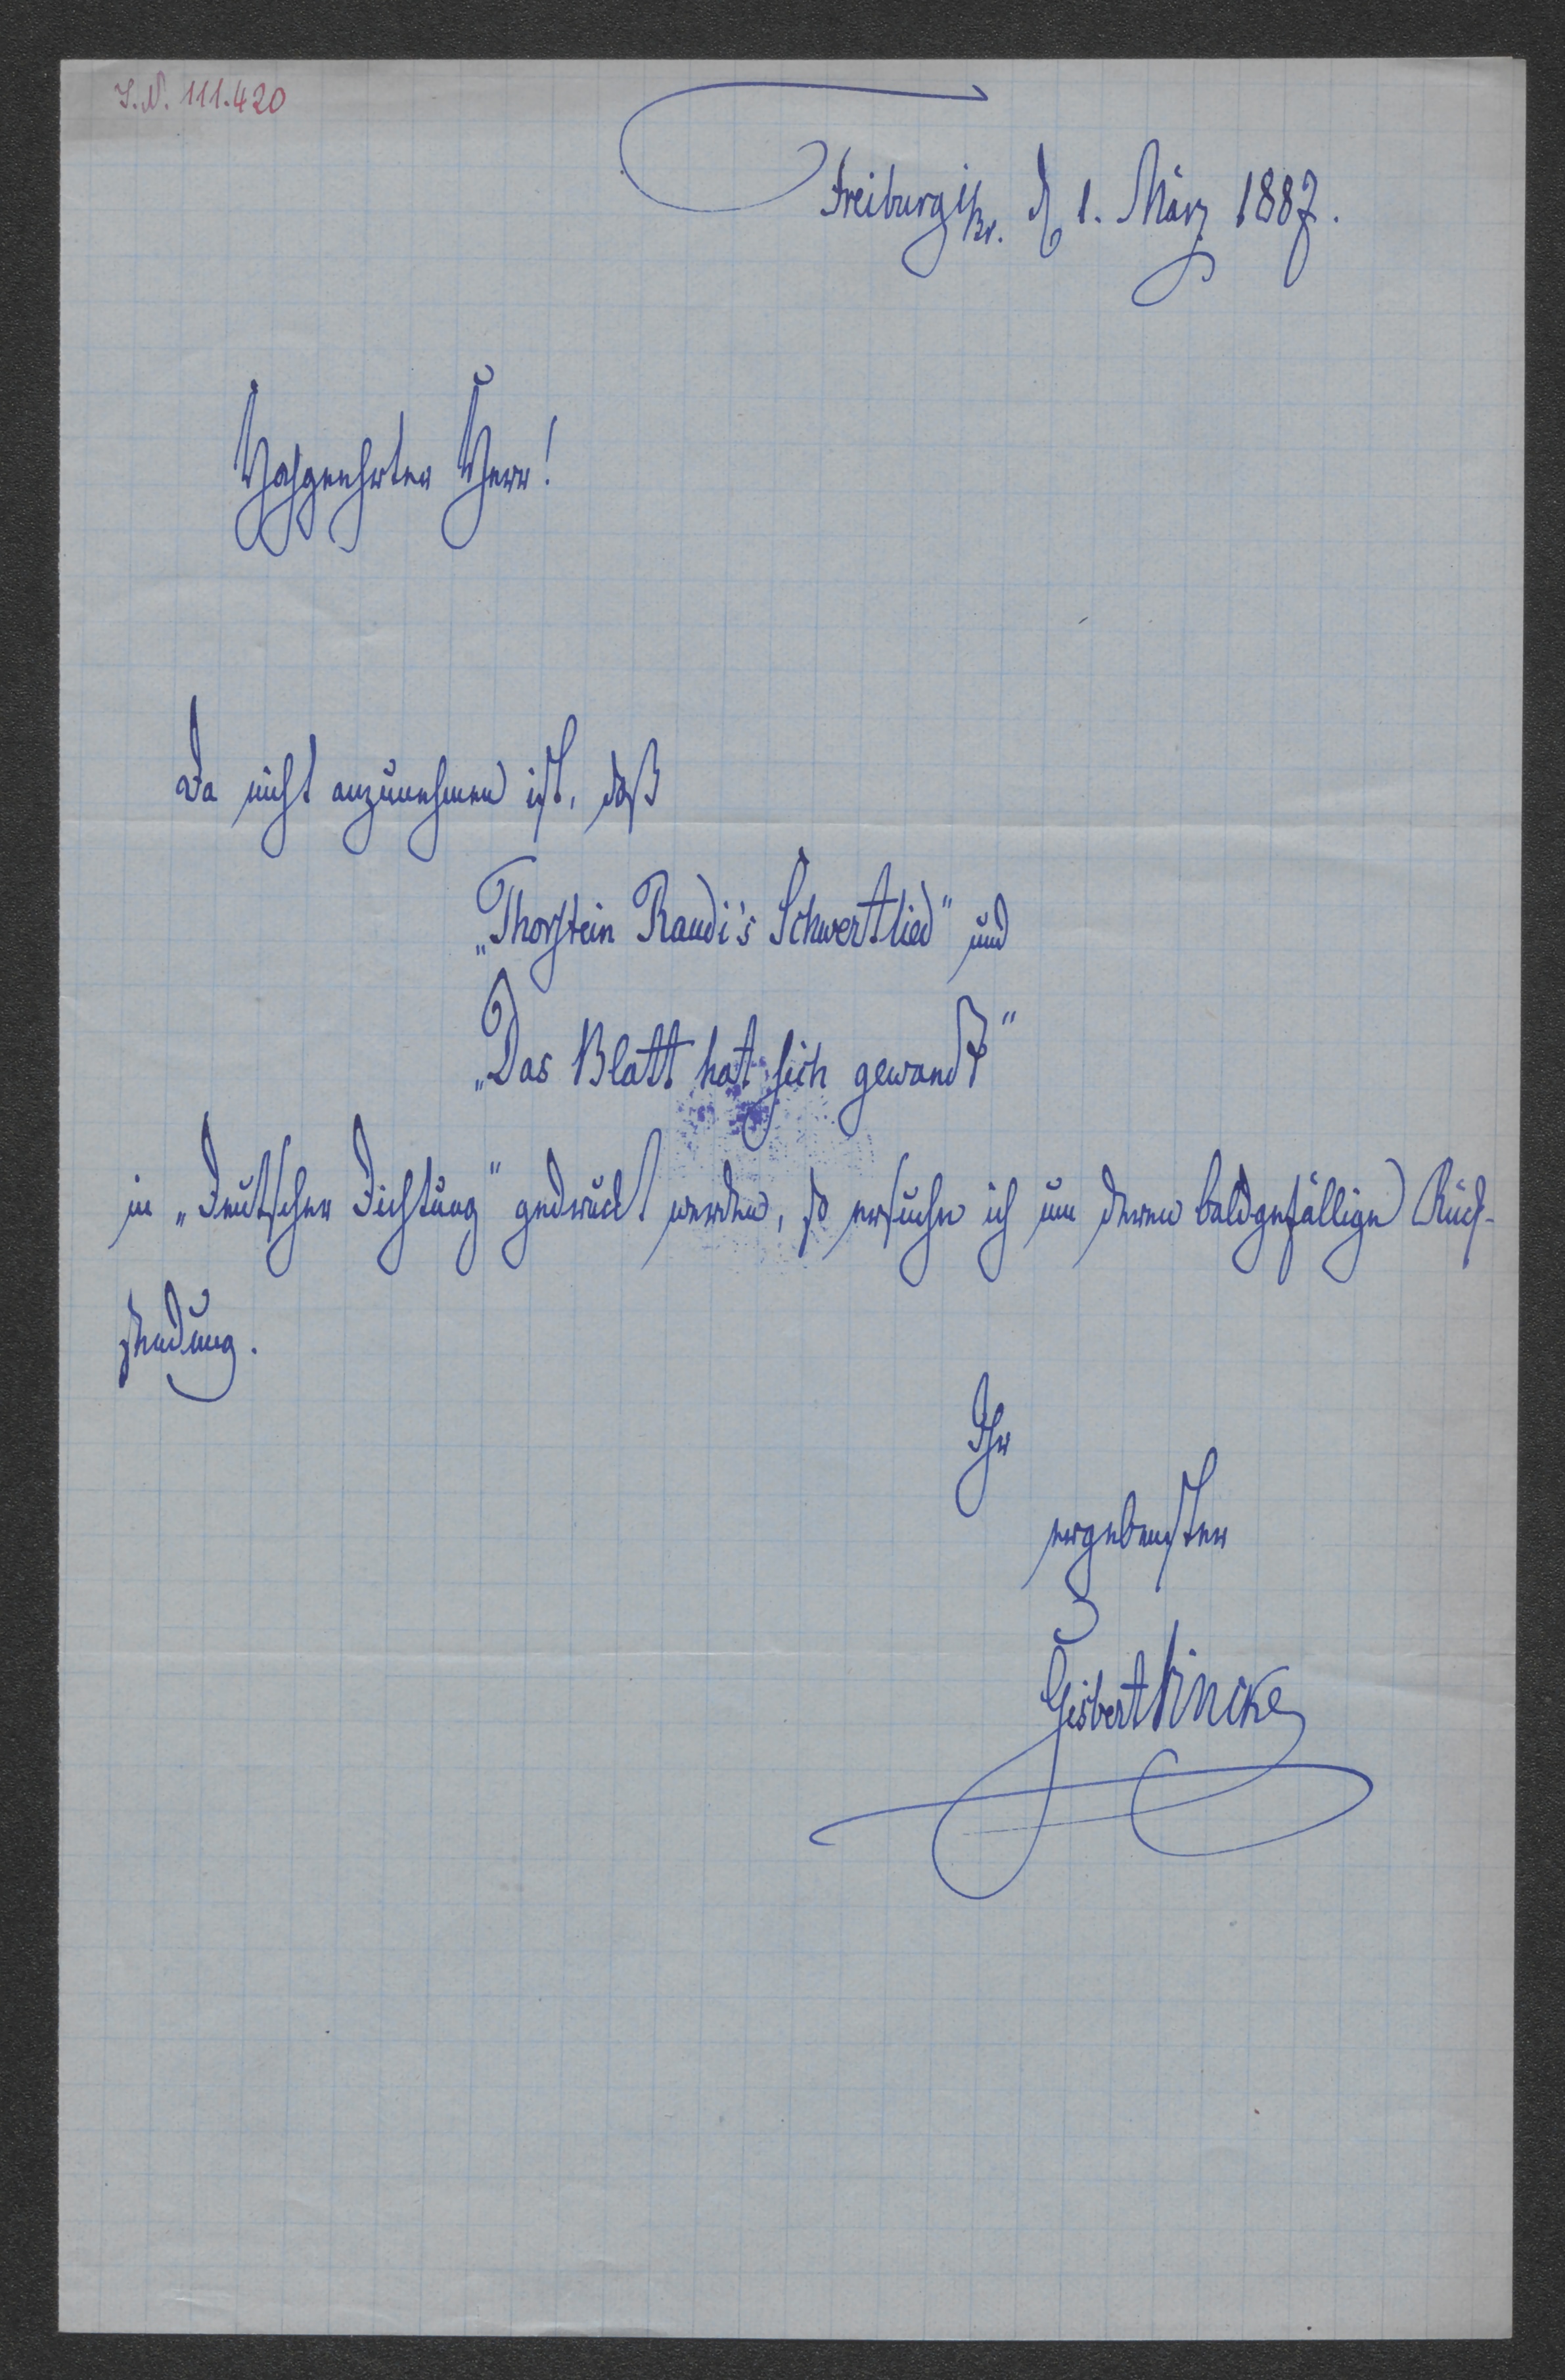 I.N. 111.420
Freiburg i/Br. d. 1. März 1887.
Hochgeehrter Herr!
Da nicht anzunehmen ist, daß
„Thorstein Raudi's Schwertlied" und
„Das Blatt hat sich gewandt"
in „Deutscher Dichtung" gedruckt werden, so ersuche ich um deren baldgefällige Rück-
sendung.
Ihr
ergebenster
Gisbert Vincke